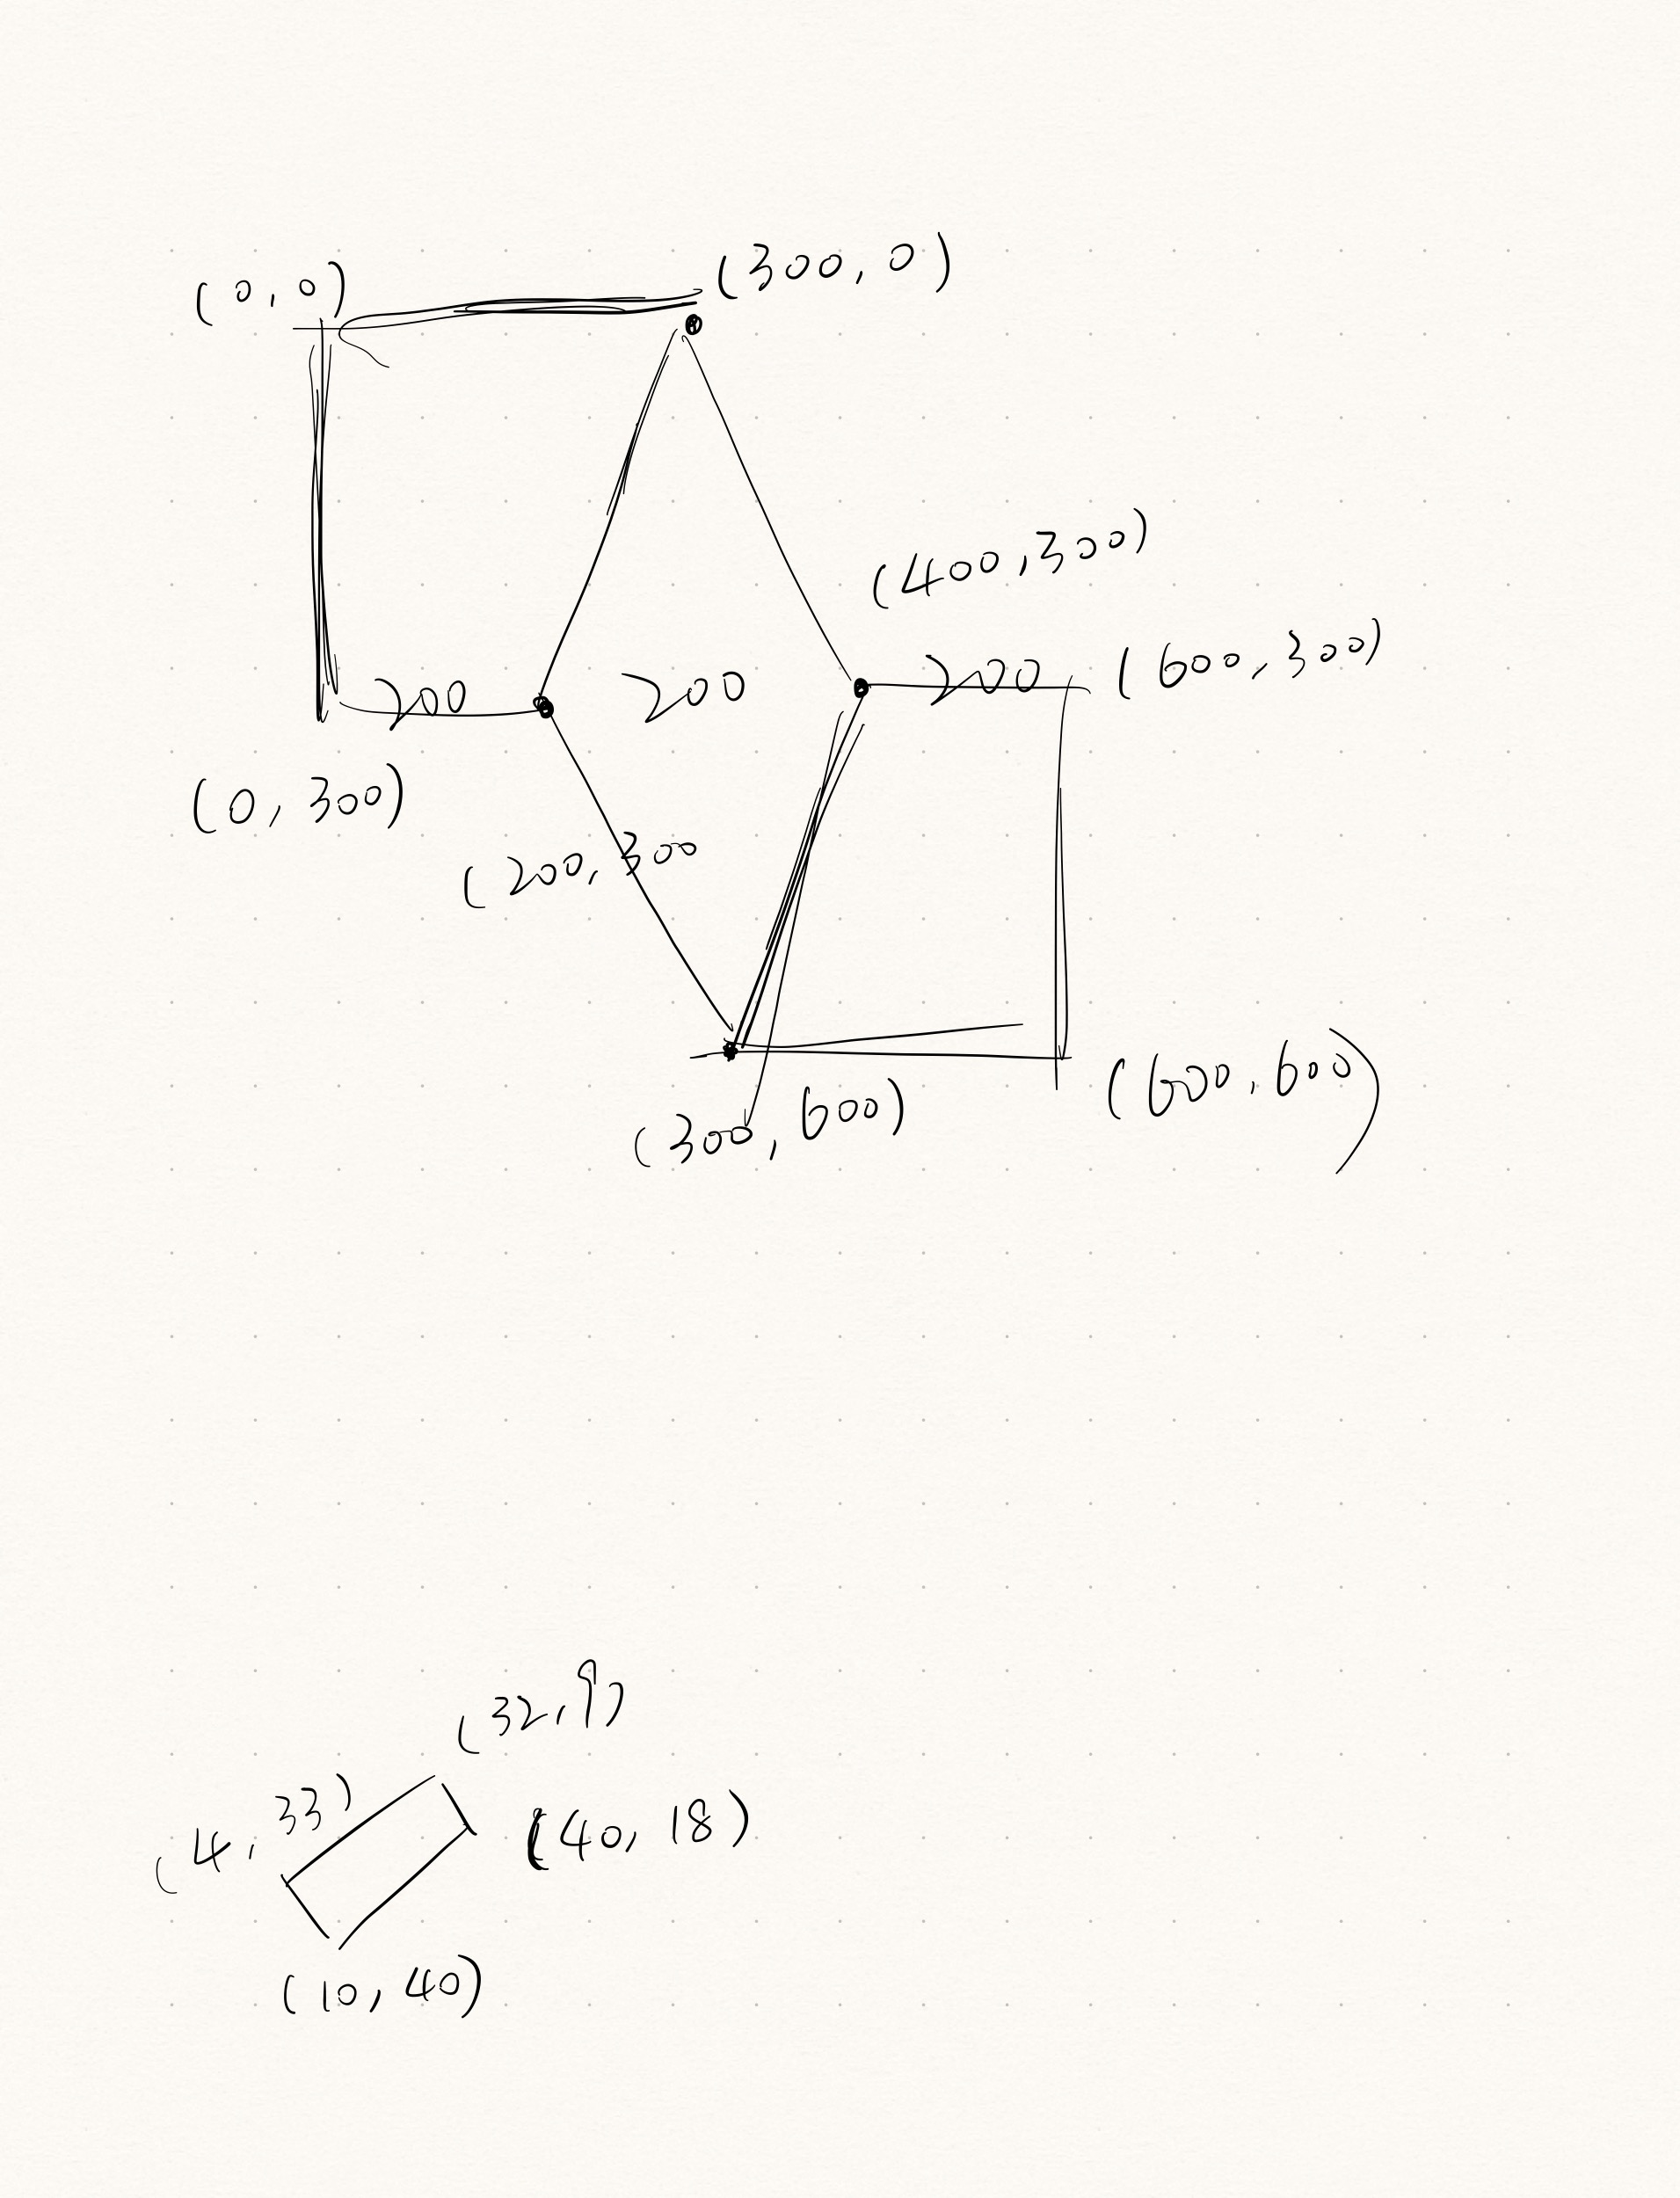 (0,0)
(300,0)
(400,300)
(600,300)
200
200
200
(0,300)
(200,300
(600,600)
(300,600)
(32,9)
(4,33)
(40,18)
(10,40)